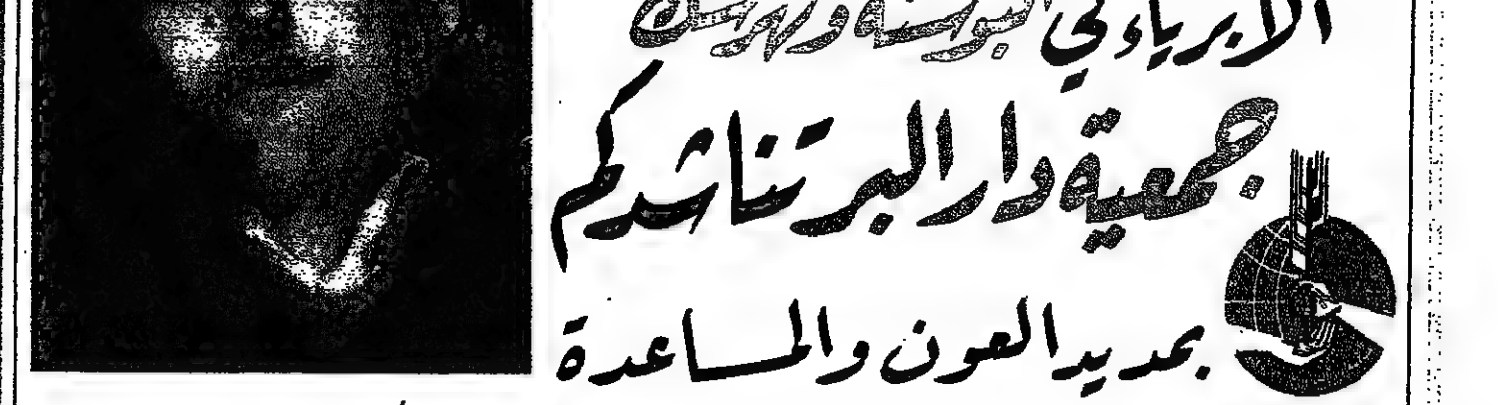 الأبرياء في البوسنة والهرسك
جمعية دار البر تناشدكم
بمد يد العون والمساعدة